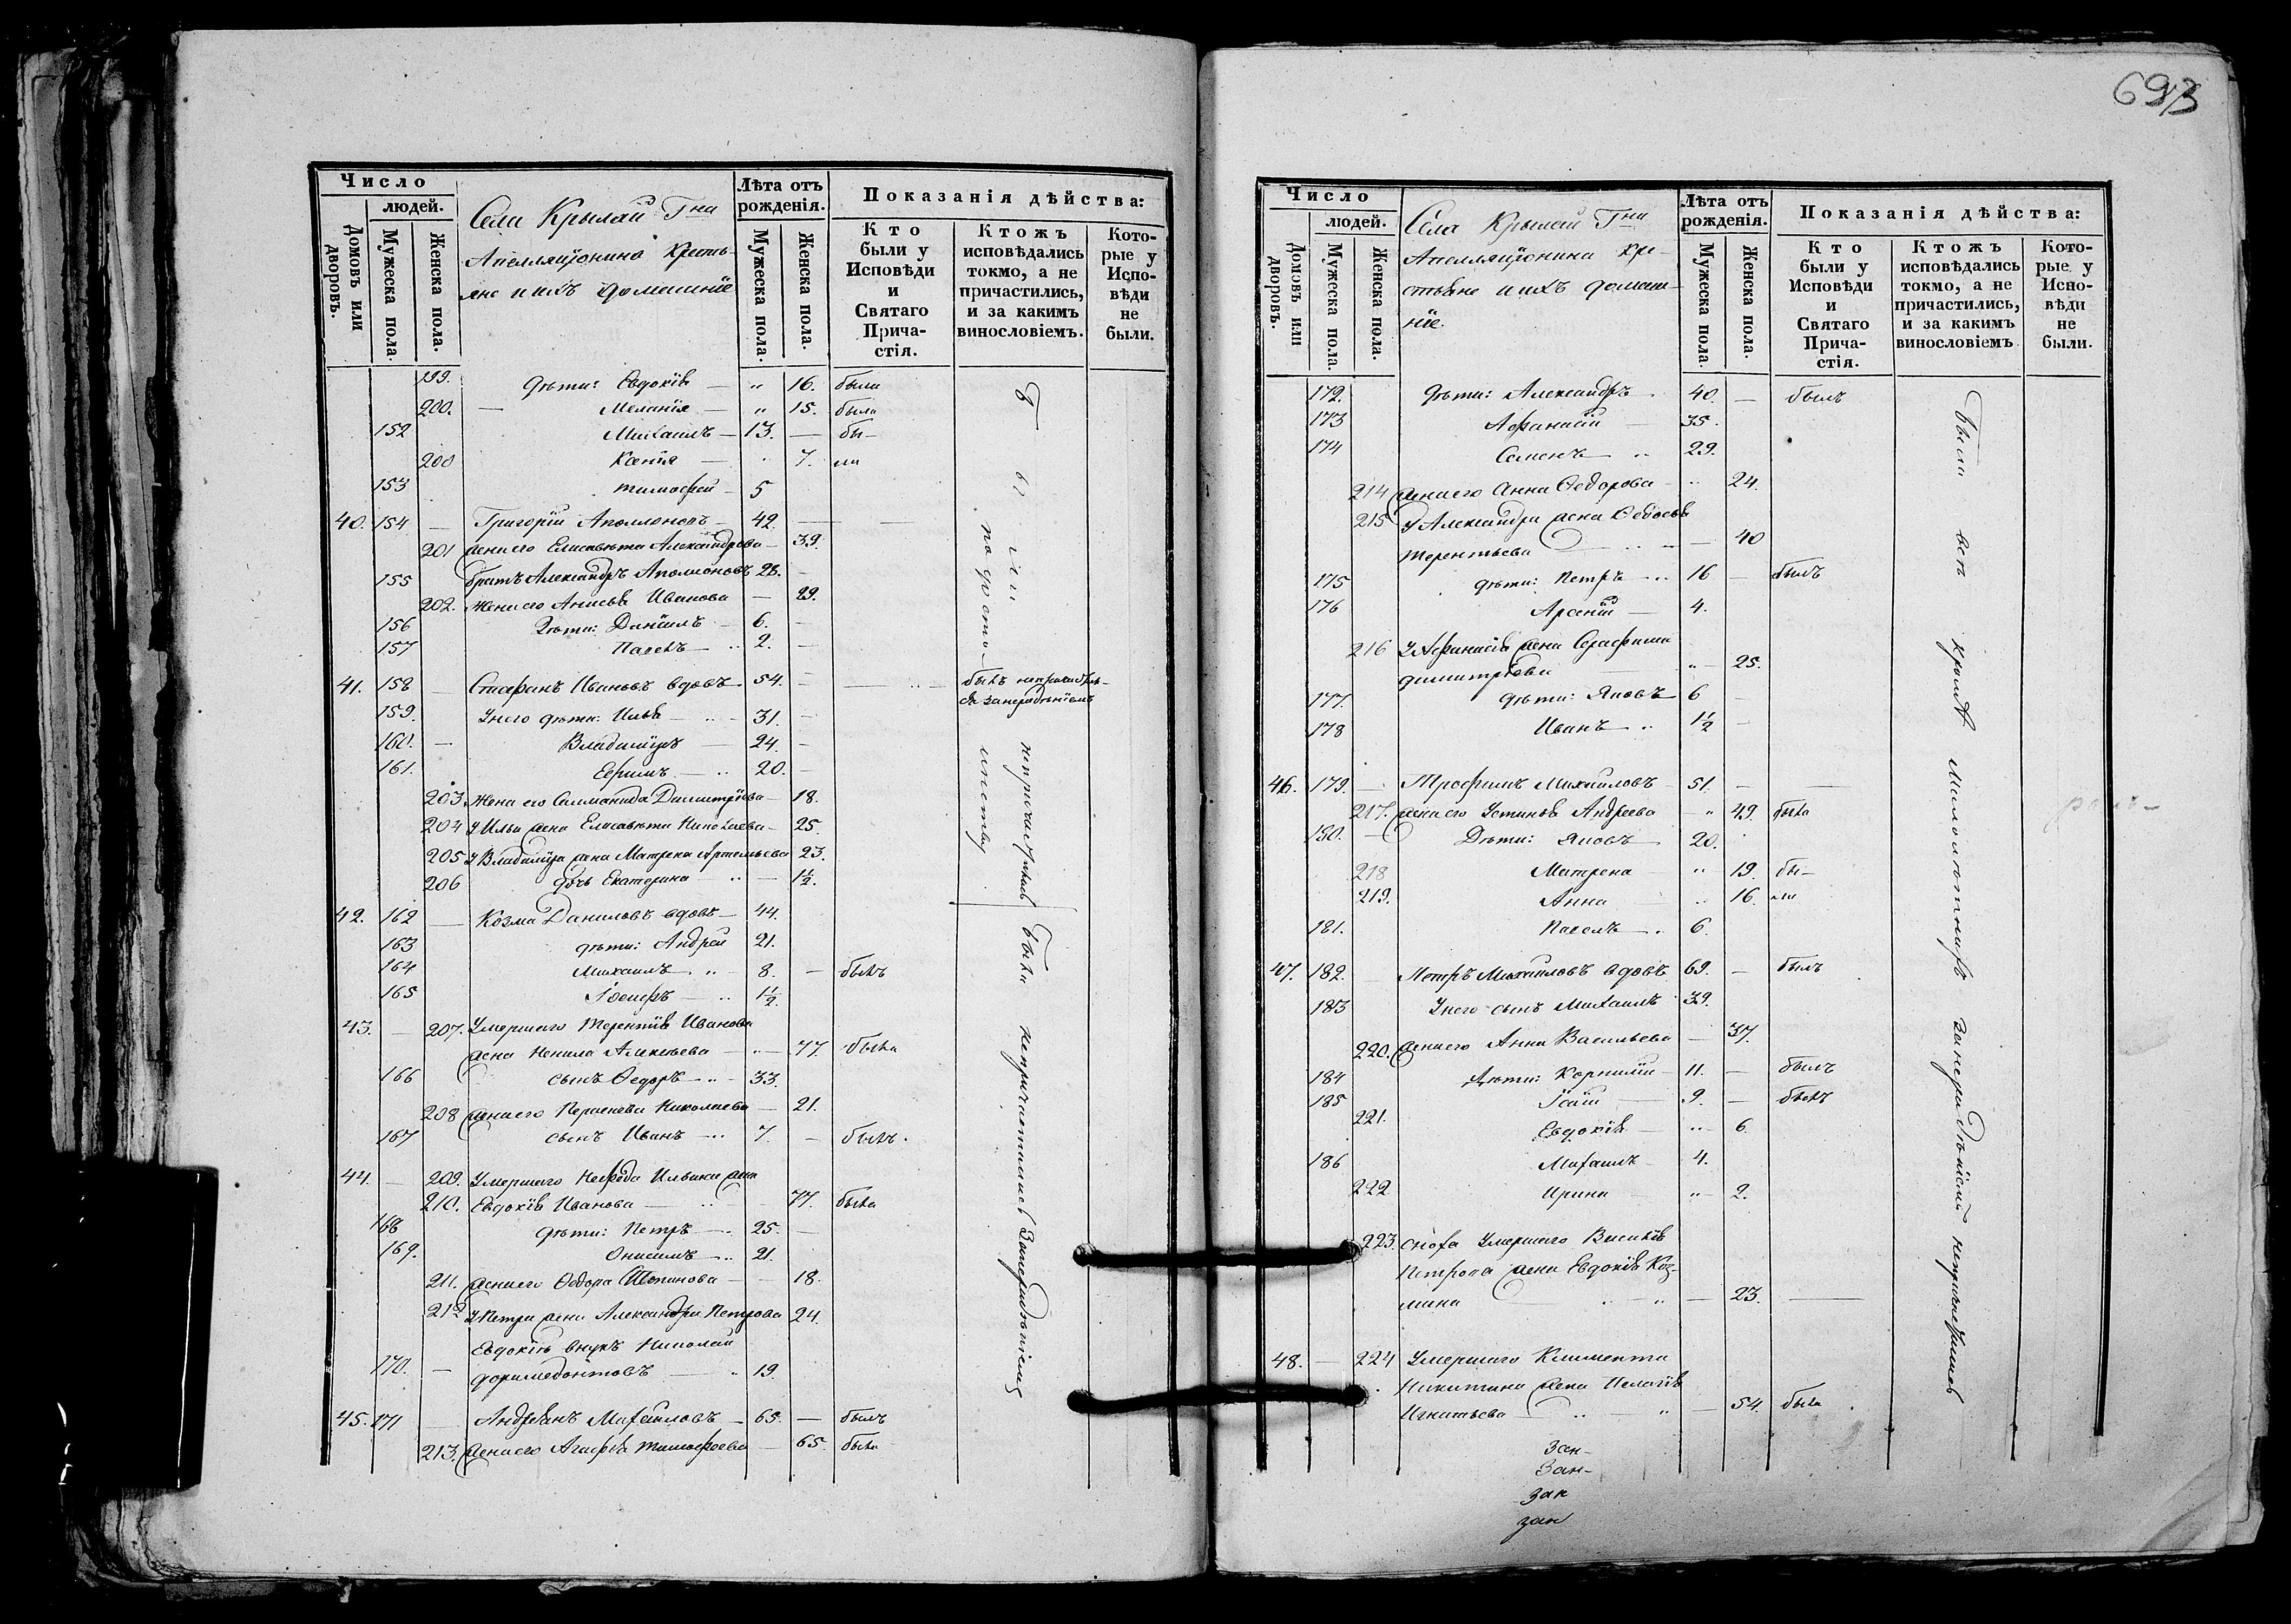 Число
людей.
Домовъ или дворовъ.
Мужеска пола.
Женска пола.
Села Крылай Гна
Апелляціонина Кресть-
яне и ихъ домашніе
Лѣта отъ рожденія.
Мужеска пола.
Женска пола.
Показанія дѣйства:
Кто были у Исповѣди и Святаго Прича-стія.
Ктожъ исповѣдались токмо, а не причастились, и за какимъ винословіемъ.
Кото-рые у Испо-вѣди не были.
199. дѣти: Евдокія — " 16. была
200. — Меланія — " 15. была
152 Михаилъ — 13. — бы-
200 Ксенія — " 7. ли
153 Тимофей — 5
40. 154 — Григорій Аполлоновъ — 42. —
201 жена его Елисавета Александрова — 39.
155 братъ Александръ Аполлоновъ 28. —
202. жена его Анисья Иванова — 29.
156 Дѣти: Даніилъ — 6. —
157 Павелъ — 2. —
41. 158 — Стефанъ Ивановъ вдовъ 54. —
159. У него дѣти: Илья — 31. —
160. — Владиміръ — 24. —
161. Ефимъ — 20. —
203. Жена его Саломонида Димитріева — 18.
204 У Ильи жена Елисавета Николаева — 25.
205 У Владиміра жена Матрена Артемьева 23.
206 дочь Екатерина — 1½.
42. 162 — Козма Даниловъ вдовъ — 44.
163 дѣти: Андрей 21.
164 Михаилъ — 8. — былъ
165 Іосифъ — 1½.
43. — 207. Умершаго Терентія Иванова
жена Ненила Алексѣева — 77. была
166 сынъ Ѳедоръ — 33.
208 жена его Параскева Николаева — 21.
167 сынъ Иванъ — 7. — былъ.
44. — 209. Умершаго Ильина жена
210. Евдокія Иванова — 77. была
168 дѣти: Петръ — 25. —
169. Онисимъ — 21.
211. жена его Ѳедора — 18.
212 У Петра жена Александра Петрова 24.
Евдокіи внукъ Николай
170. — Доримедонтовъ — 19.
45. 171 — Андреянъ Михаиловъ — 65. — былъ
213. жена его Агафья Тимофеева — 65. была
Были
по досто-
инству
не причастилъ-
ся за нерадѣніемъ
Были не причастились за нерадѣніемъ
693
Число
людей.
Домовъ или дворовъ.
Мужеска пола.
Женска пола.
Села Крылай Гна
Апелляціонина кре-
стьяне и ихъ домаш-
ніе.
Лѣта отъ рожденія.
Мужеска пола.
Женска пола.
Показанія дѣйства:
Кто были у Исповѣди и Святаго Прича-стія.
Ктожъ исповѣдались токмо, а не причастились, и за какимъ винословіемъ
Кото-рые у Испо-вѣди не были.
172. дѣти: Александръ 40. — былъ
173 Афанасій — 35.
174 Семенъ 29.
214 жена его Анна Ѳедорова " 24.
215 У Александра жена Ѳедосья
Терентьева — 40
175 дѣти: Петръ 16 — былъ
176 Арсеній — 4.
216 У Афанасія жена Серафима
Димитріева " — 25.
177. дѣти: Яковъ 6 —
178 Иванъ 1½ —
46. 179. — Трофимъ Михаиловъ 51. —
217. жена его Устинья Андреева " 49. была
180. — Дѣти: Яковъ 20.
218 Матрена " 19. бы-
219. Анна 16. ли
181. Павелъ 6.
47. 182. Петръ Михаиловъ вдовъ 69. — былъ
183 У него сынъ Михаилъ 39.
220. жена его Анна Васильева — 37.
184 Дѣти: Корнилій — 11. — былъ
185 9. — былъ
221. Евдокія — 6.
186 Михаилъ 4.
222 Ирина — " 2.
223. сноха умершаго Василія
Петрова жена Евдокія Коз-
мина — 23. —
48. — 224 Умершаго Климента
Никитина жена Пелагія
Игнатьева — 54. была
Были всѣ кромѣ малолѣтнихъ за нерадѣніемъ не причастились
Зак-
Зак-
зак
зак